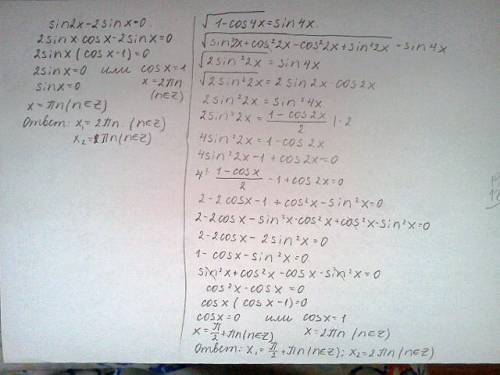 sin2x-2sinx=0.
2sinx cosx-2sinx=0
2sinx(cosx-1)=0
2sinx=0 или cosx=1
sinx=0 x=2πn
(n∈Z)
x=πn(n∈Z)
Ответ: x₁=2πn. (n∈Z)
x₂=πn(n∈Z)
√1-cos4x=sin4x.
√sin²2x+cos²2x-cos²2x+sin²2x=sin4x
√2sin²2x=sin4x
√2sin²2x=2sin2x·cos2x
2sin²2x=sin²4x
2sin²2x=1-cos2x/2 |·2
4sin²2x=1-cos2x
4sin²2x-1+cos2x=0
4·1-cosx/2-1+cos2x=0
2-2cosx-1+cos²x-sin²x=0
2-2cosx-sin²x-cos²x+cos²x-sin²x=0
2-2cosx-2sin²x=0
1-cosx-sin²x=0
sin²x+cos²x-cosx-sin²x=0
cos²x-cosx=0
cosx(cosx-1)=0
cosx=0 или cosx=1
x=π/2+πn(n∈Z) x=2πn(n∈Z)
Ответ: x₁=π/2+πn(n∈Z); x₂=2πn(n∈Z)